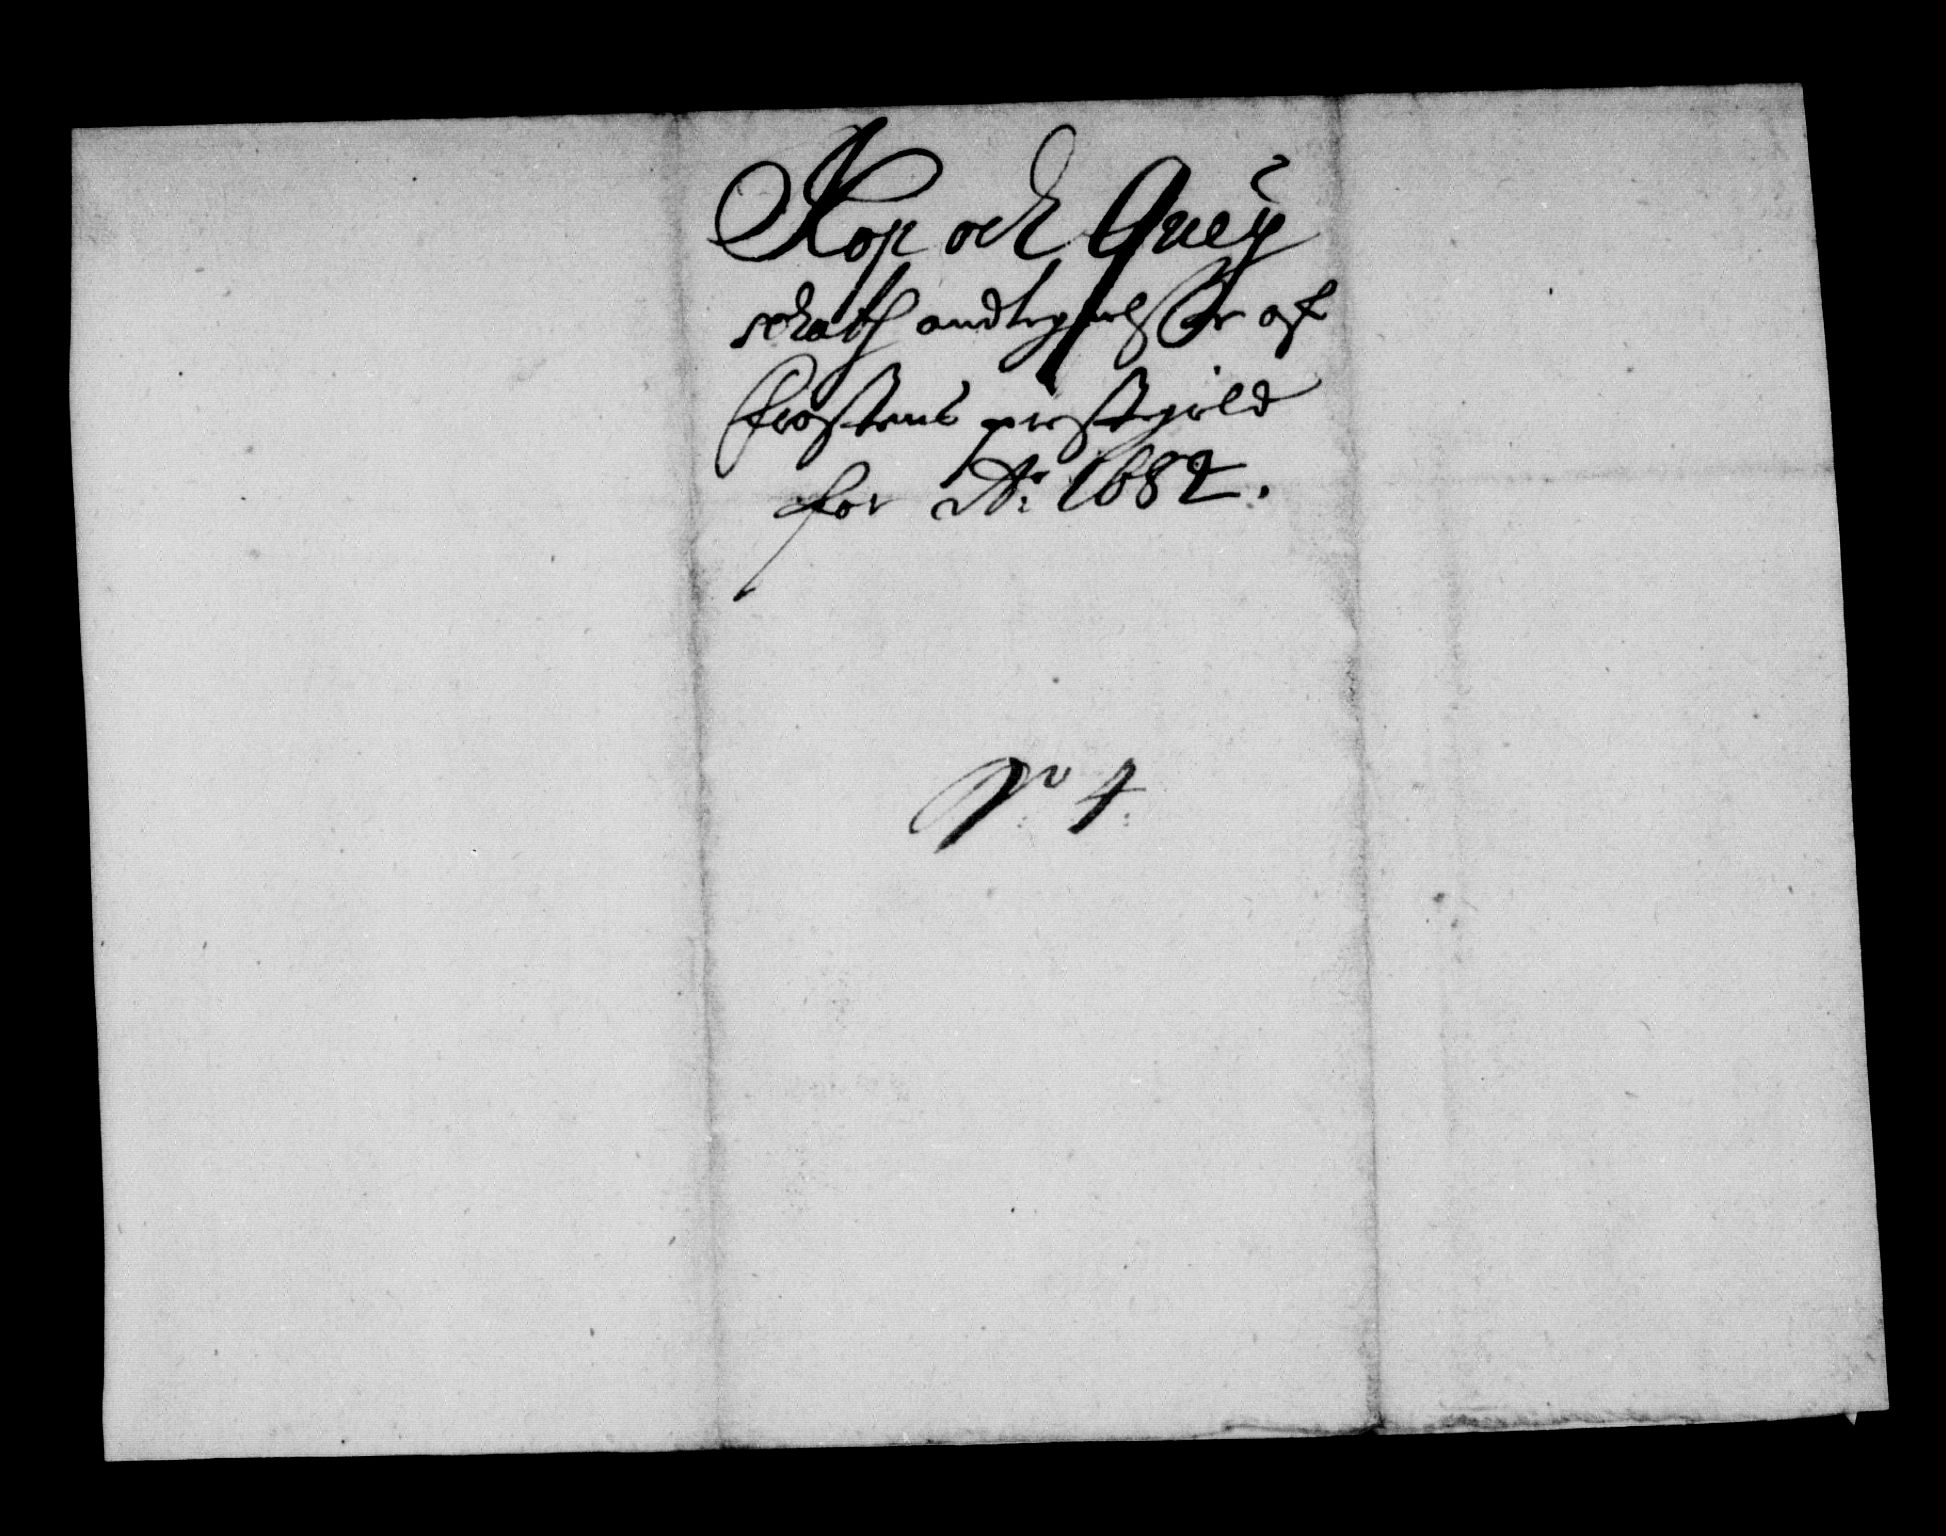 Kop och Queg
schats andtegnelsser af
frostens prestegield
for Ao: 1682.
No 4.